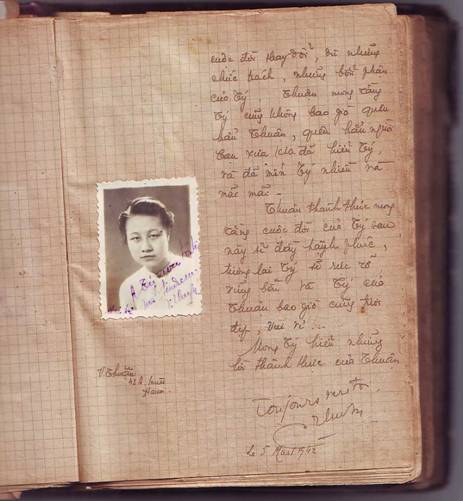 cuộc đời thay đổi, dù những
chức trách, những bổn phận
của Tý Thuần mong rằng
Tý cũng không bao giờ quên
hẳn Thuần, quên hẳn người
bạn xưa kia đã hiểu Tý,
và đã mến Tý nhiều và
mãi mãi -
Thuần thành thực mong
rằng cuộc đời của Tý sau
này sẽ đầy hạnh phúc,
tương lai Tý sẽ rực rỡ
vững bền và Tý của
Thuần bao giờ cũng tươi
đẹp, vui vẻ.
Mong Tý hiểu những
lời thành thực của Thuần
Toujours
Le 5 1942
V. Thuần
42 A.
Hanoi